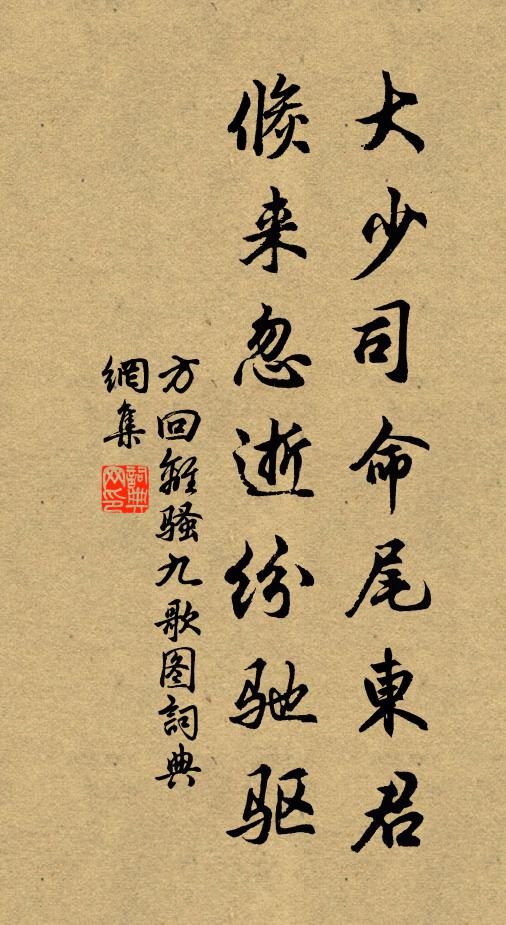 大少司命尾東君
倐来忽逝纷驰驱
方回離骚九歌图詞典
網集
詞典网印